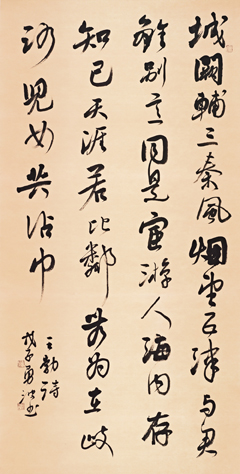 城闕輔三秦風烟望五津与君
離別意同是宦游人海内存
知己天涯若比鄰無為在歧
路兒女共沾巾
王勃詩
戊子